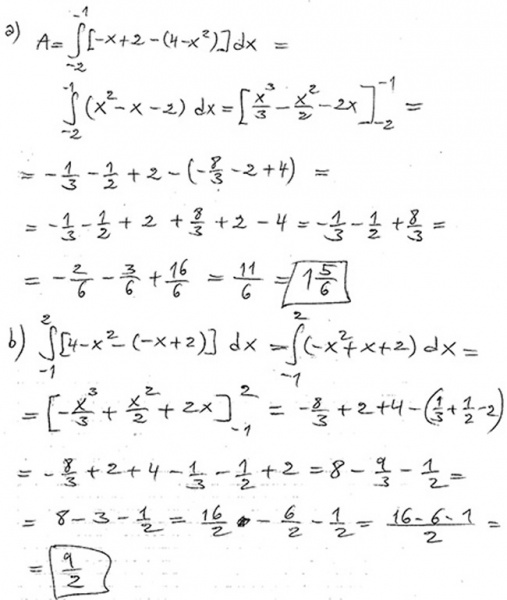 a) A = ∫_{-2}^{-1} [-x+2-(4-x²)] dx =
∫_{-2}^{-1} (x²-x-2) dx = [x³/3 - x²/2 - 2x]_{-2}^{-1} =
= -1/3 - 1/2 + 2 - (-8/3 - 2 + 4) =
= -1/3 - 1/2 + 2 + 8/3 + 2 - 4 = -1/3 - 1/2 + 8/3 =
= -2/6 - 3/6 + 16/6 = 11/6 = 1 5/6
b) ∫_{-1}^{2} [4-x²-(-x+2)] dx = ∫_{-1}^{2} (-x²+x+2) dx =
= [-x³/3 + x²/2 + 2x]_{-1}^{2} = -8/3 + 2 + 4 - (1/3 + 1/2 - 2)
= -8/3 + 2 + 4 - 1/3 - 1/2 + 2 = 8 - 9/3 - 1/2 =
= 8 - 3 - 1/2 = 16/2 - 6/2 - 1/2 = (16-6-1)/2 =
= 9/2